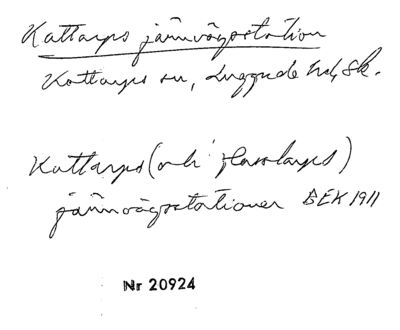 Kattarps järnvägsstation
Kattarps sn, Luggude hd, Sk.
Kattarps (och Hasslarps)
järnvägsstationer BEK 1911
Nr 20924